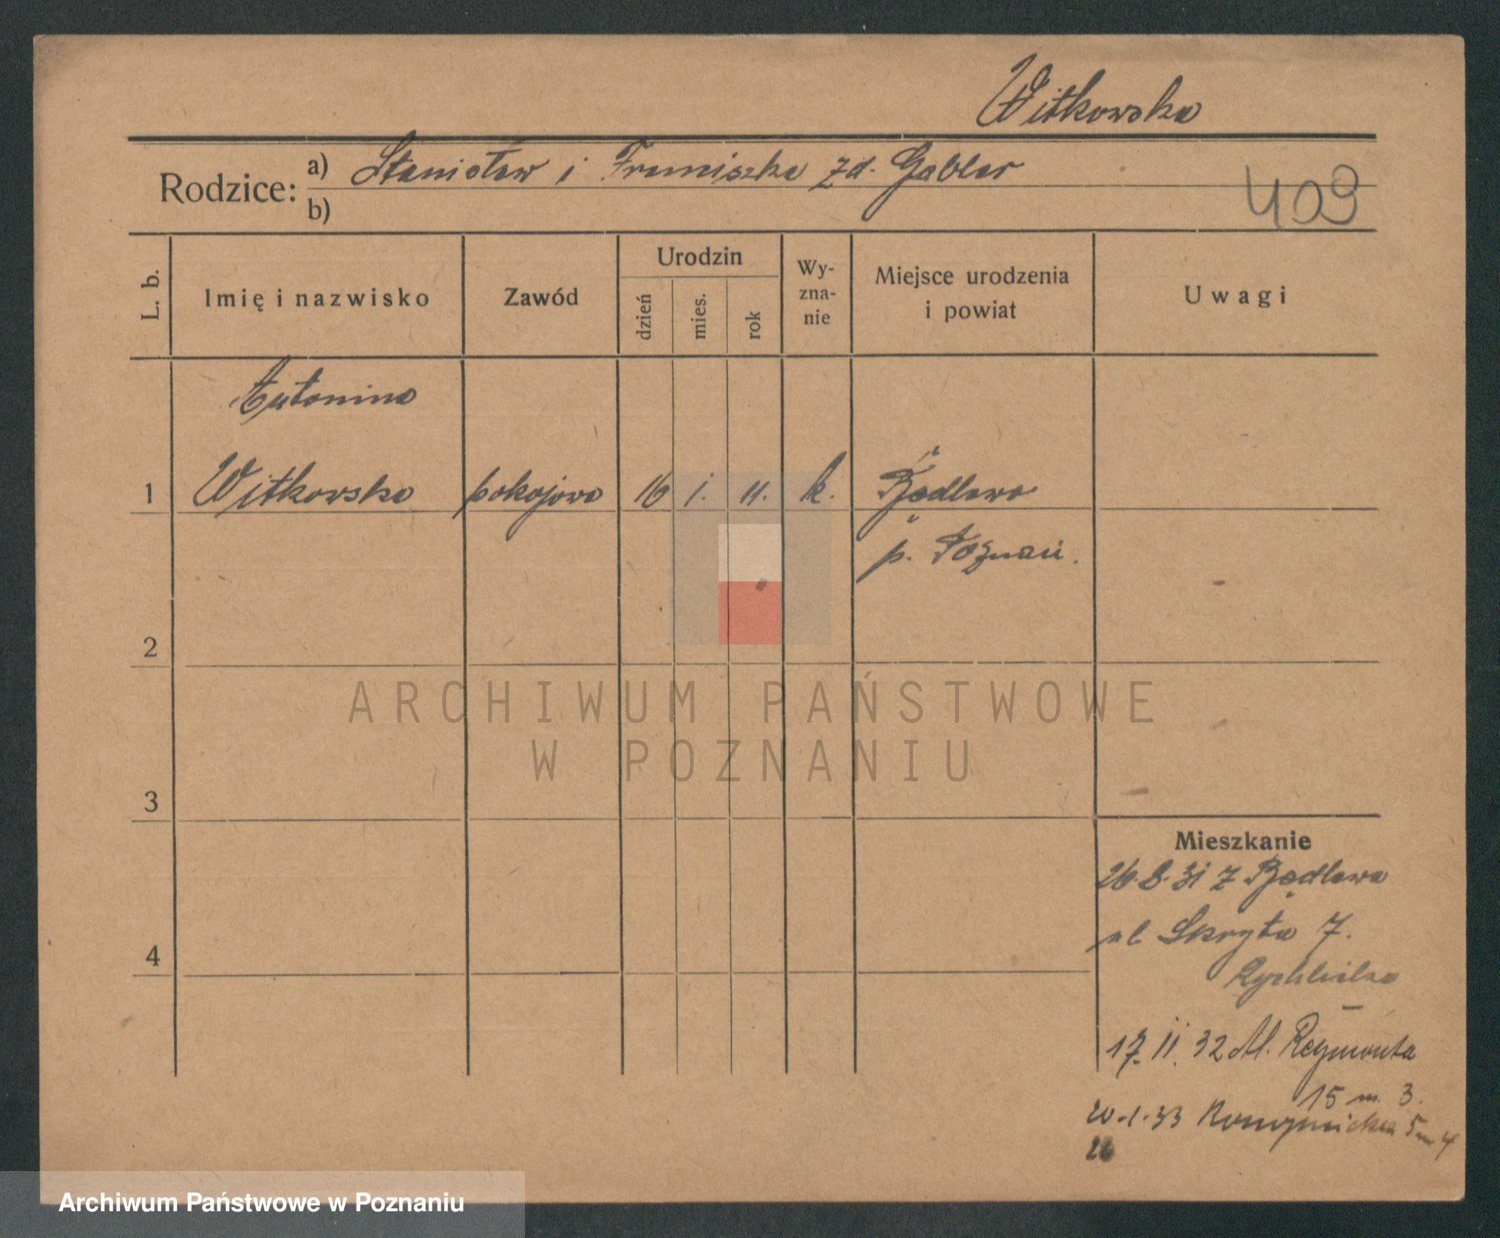 Witkowska
Rodzice: a) Stanisław i Franciszka zd. Gabler
b)
409
L. b.
Imię i nazwisko
Zawód
Urodzin
dzień
mies.
rok
Wy-
zna-
nie
Miejsce urodzenia
i powiat
Uwagi
Antonina
1 Witkowska pokojowa 16 1. 11. k. Będlewo
p. Poznań.
2
3
4
Mieszkanie
26.8.31 z Będlewa
ul. Skryta 7.
17. II. 32 Al. Reymonta
15 m. 3.
20.1.33 5 m 4
26
ARCHIWUM PAŃSTWOWE
W POZNANIU
Archiwum Państwowe w Poznaniu